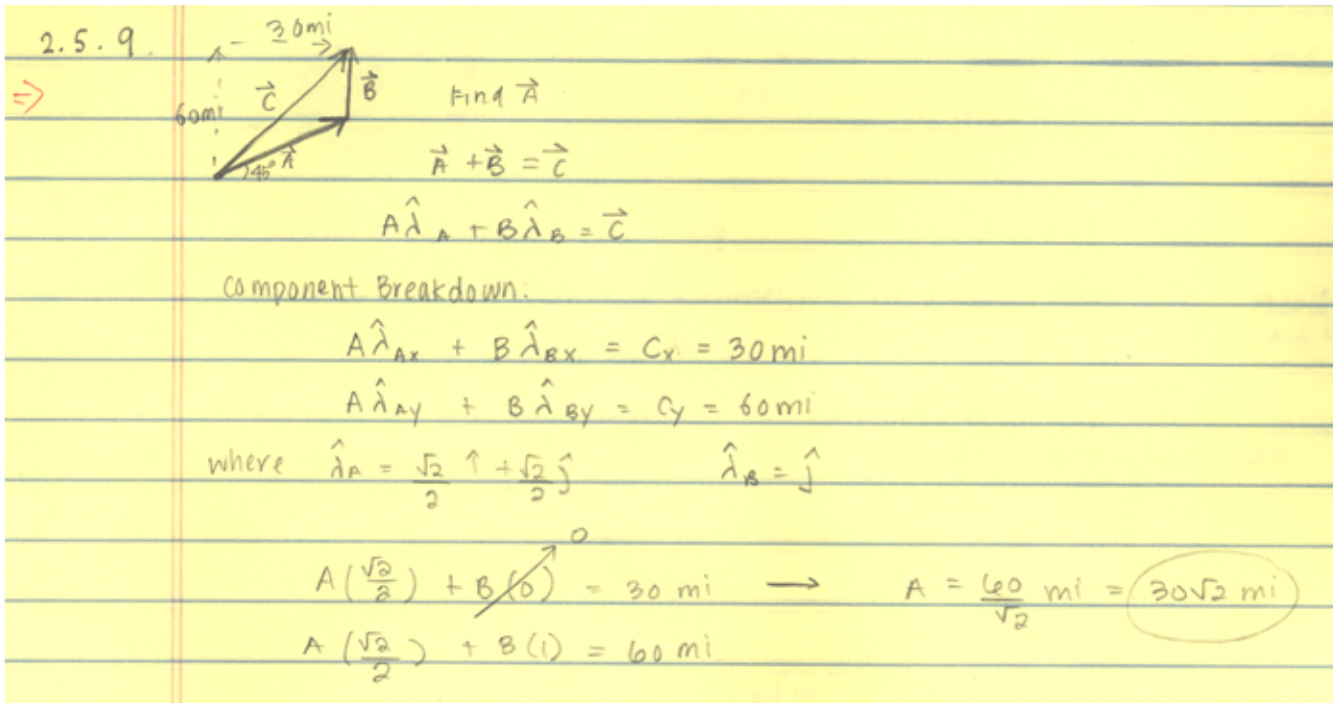 2.5.9.
30mi
⇒
60mi
C⃗
B⃗
Find A⃗
45° A⃗
A⃗ + B⃗ = C⃗
Aλ̂_A + Bλ̂_B = C⃗
Component Breakdown:
Aλ̂_Ax + Bλ̂_Bx = C_x = 30mi
Aλ̂_Ay + Bλ̂_By = C_y = 60mi
where λ̂_A = √2/2 î + √2/2 ĵ λ̂_B = ĵ
0
A(√2/2) + B(0) = 30 mi → A = 60/√2 mi = 30√2 mi
A(√2/2) + B(1) = 60 mi